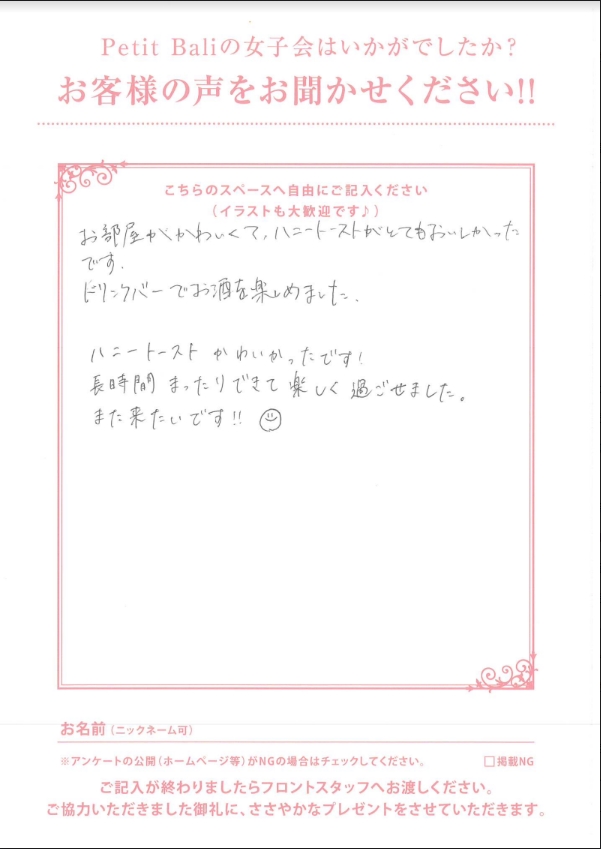 Petit Baliの女子会はいかがでしたか？
お客様の声をお聞かせください!!
こちらのスペースへ自由にご記入ください
（イラストも大歓迎です♪）
お部屋がかわいくて，ハニートーストがとてもおいしかった
です．
ドリンクバーでお酒を楽しめました．
ハニートースト かわいかったです！
長時間 まったりできて 楽しく 過ごせました。
また来たいです!!
お名前（ニックネーム可）
※アンケートの公開（ホームページ等）がNGの場合はチェックしてください。 □掲載NG
ご記入が終わりましたらフロントスタッフへお渡しください。
ご協力いただきました御礼に、ささやかなプレゼントをさせていただきます。